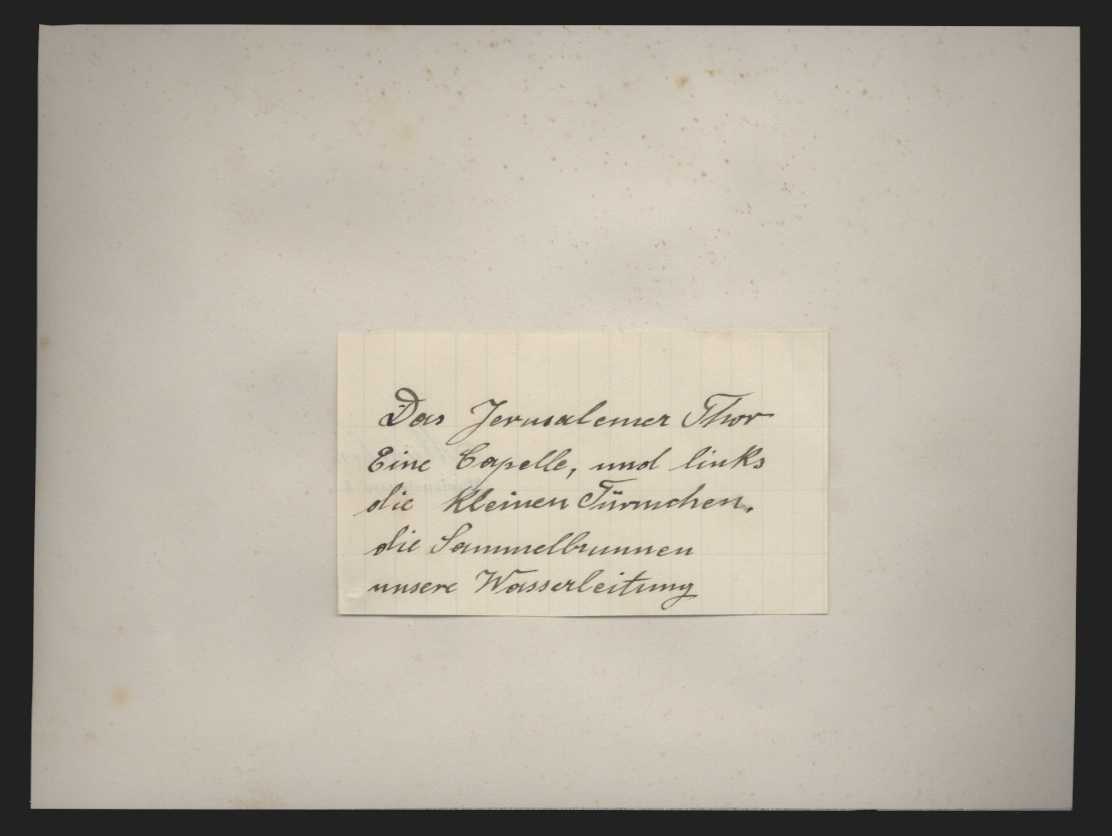 Das Jerusalemer Thor
Eine Capelle, und links
die kleinen Türmchen.
die Sammelbrunnen
unsere Wasserleitung